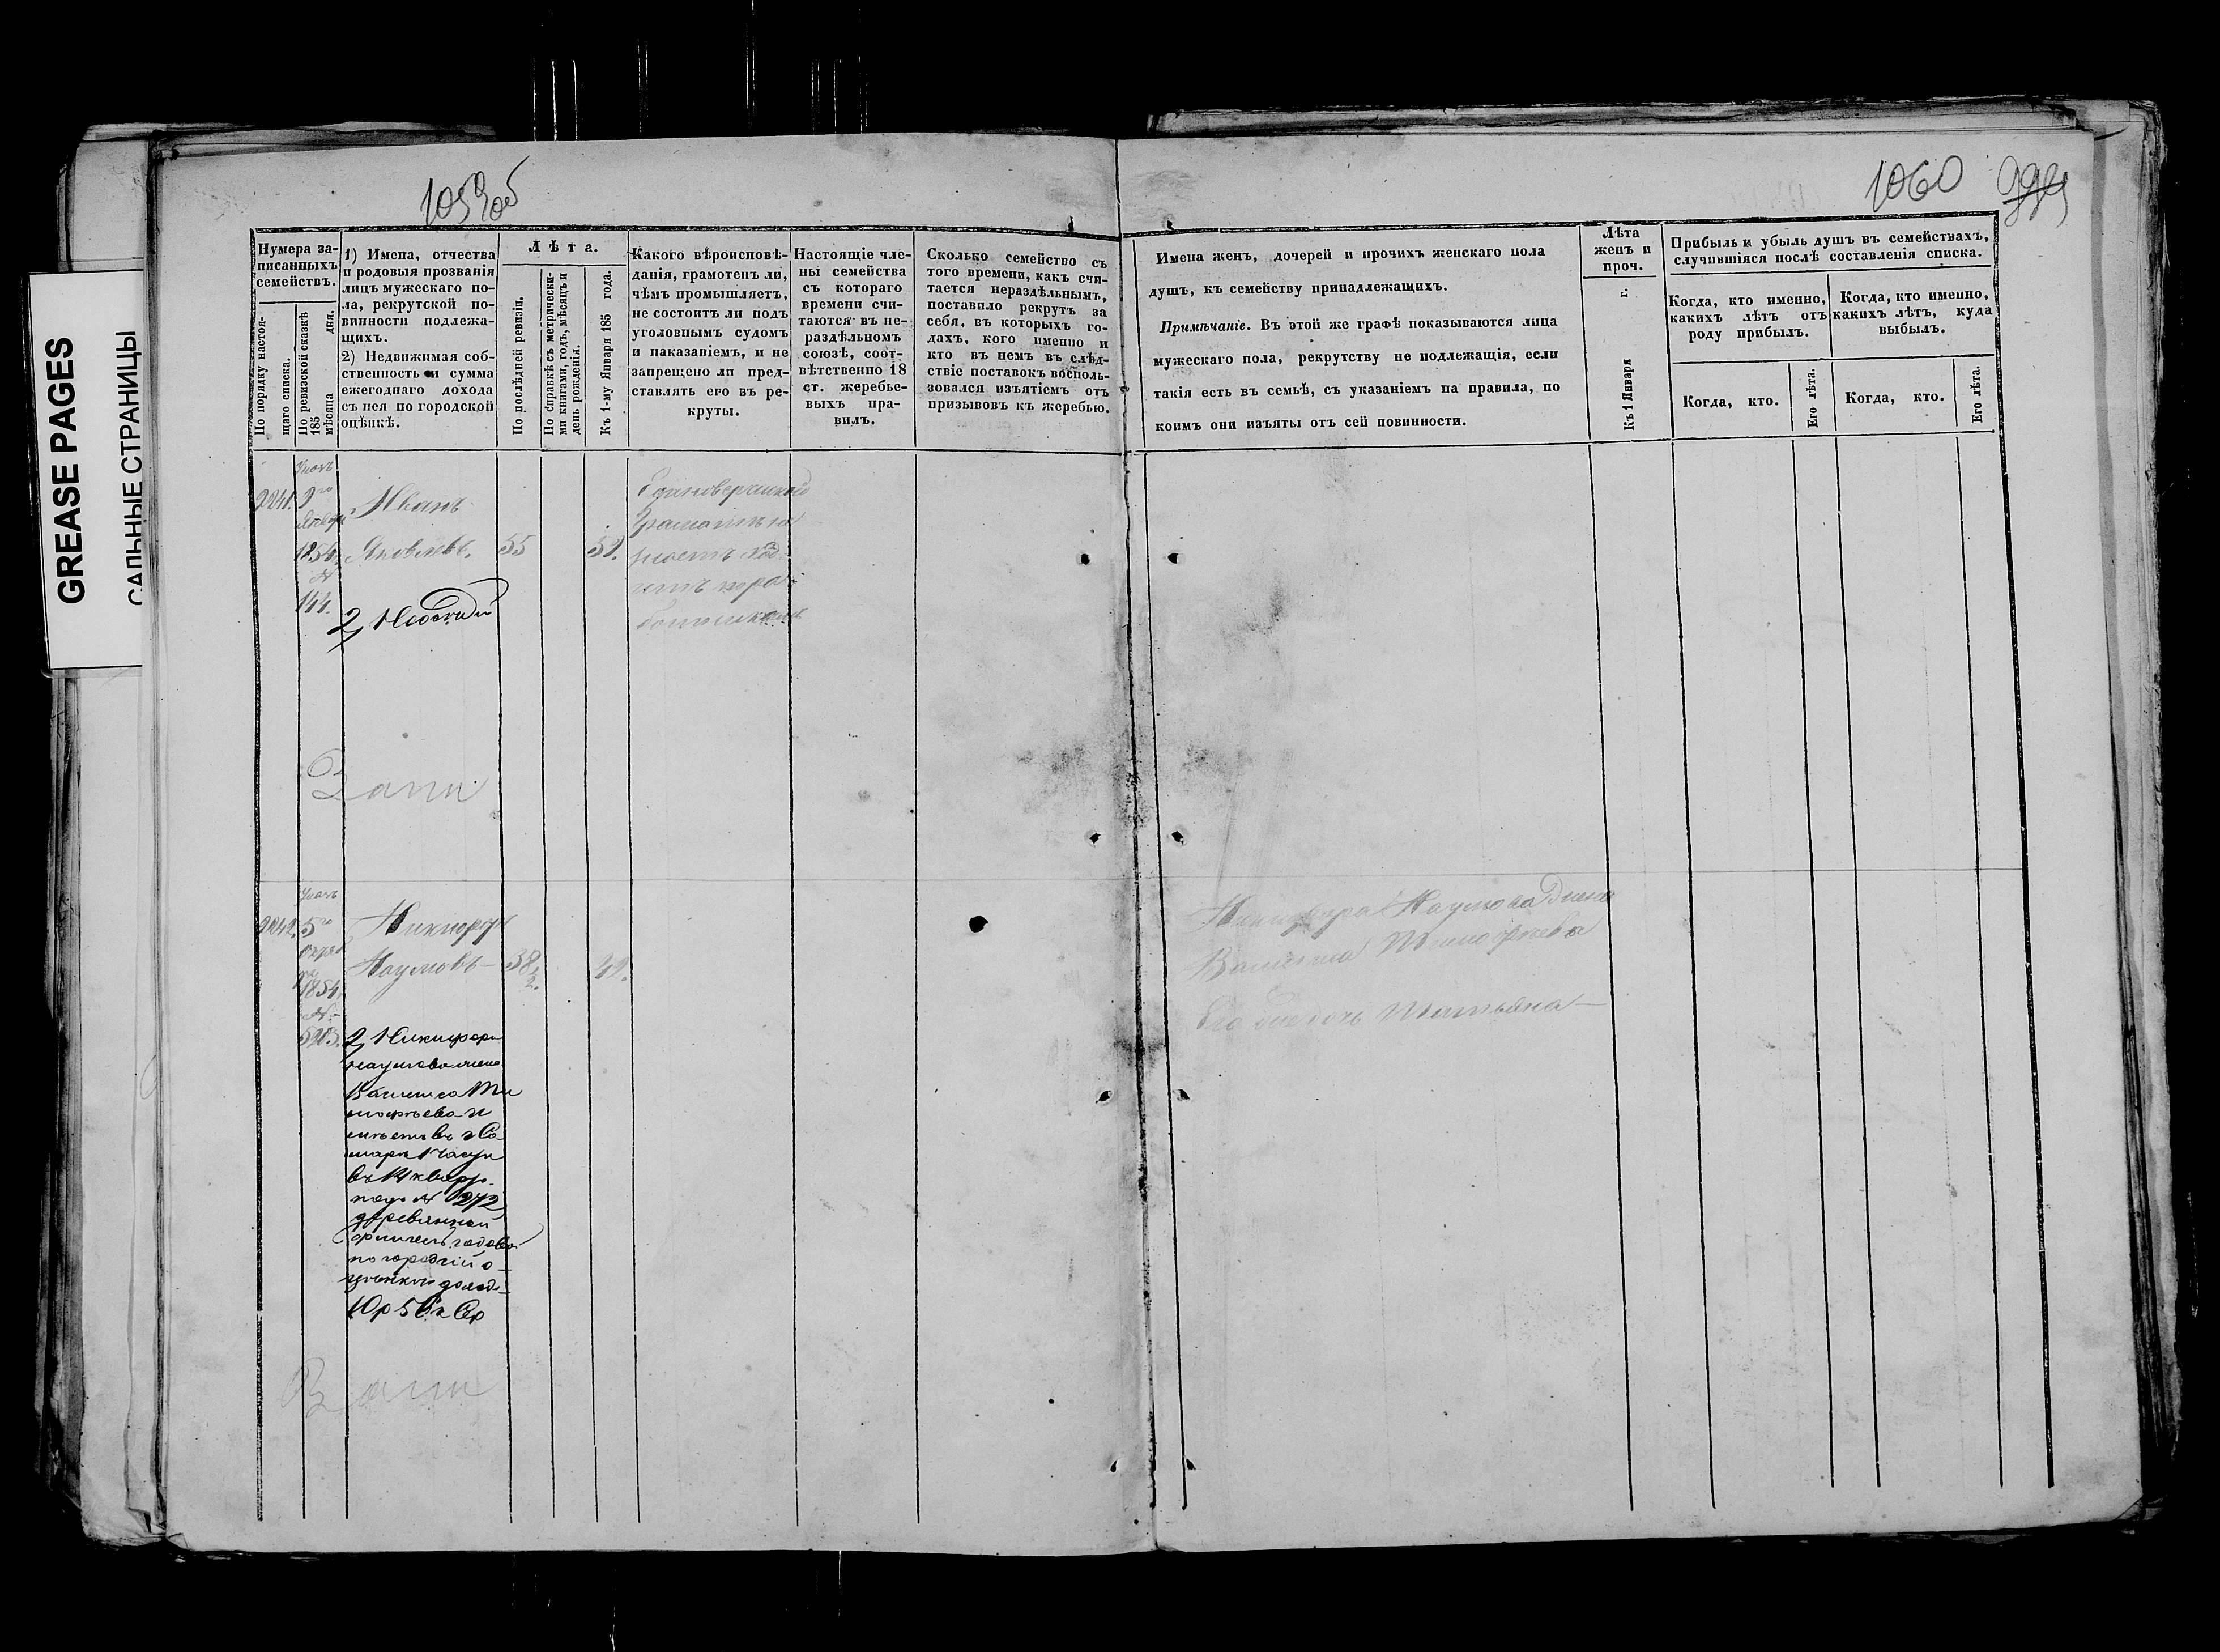 GREASE PAGES
САЛЬНЫЕ СТРАНИЦЫ
1059об
1060
Нумера за-
писанныхъ
семействъ.
По порядку настоя-
щаго списка.
По ревизской сказкѣ
185 дня.
мѣсяца
1) Имена, отчества
и родовыя прозванія
лицъ мужескаго по-
ла, рекрутской по-
винности подлежа-
щихъ.
2) Недвижимая соб-
ственность и сумма
ежегоднаго дохода
съ нея по городской
оцѣнкѣ.
Лѣта.
По послѣдней ревизіи.
По справкѣ съ метрически-
ми книгами, годъ, мѣсяцъ и
день рожденія.
Къ 1-му Января 185 года.
Какого вѣроисповѣ-
данія, грамотенъ ли,
чѣмъ промышляетъ,
не состоитъ ли подъ
уголовнымъ судомъ
и наказаніемъ, и не
запрещено ли пред-
ставлять его въ ре-
круты.
Настоящіе чле-
ны семейства
съ котораго
времени счи-
таются въ не-
раздѣльномъ
союзѣ, соот-
вѣтственно 18
ст. жеребье-
выхъ пра-
вилъ.
Сколько семейство съ
того времени, какъ счи-
тается нераздѣльнымъ,
поставило рекрутъ за
себя, въ которыхъ го-
дахъ, кого именно и
кто въ немъ въ слѣд-
ствіе поставокъ восполь-
зовался изъятіемъ отъ
призывовъ къ жеребью.
Имена женъ, дочерей и прочихъ женскаго пола
душъ, къ семейству принадлежащихъ.
Примѣчаніе. Въ этой же графѣ показываются лица
мужескаго пола, рекрутству не подлежащія, если
такія есть въ семьѣ, съ указаніемъ на правила, по
коимъ они изъяты отъ сей повинности.
Лѣта
женъ и
проч.
Къ 1 Января г.
Прибыль и убыль душъ въ семействахъ,
случившіяся послѣ составленія списка.
Когда, кто именно,
какихъ лѣтъ отъ
роду прибылъ.
Когда, кто именно,
какихъ лѣтъ, куда
выбылъ.
Когда, кто.
Его лѣта.
Когда, кто.
Его лѣта.
2241. 9го Иванъ
1854. Яковлевъ. 55 59.
№
144.
Единоверческой
Грамотѣ не
знаетъ ход-
итъ по ра-
ботишкамъ
2242. 5го Никифоръ
Наумовъ 38 42.
1854.
№
525.
2, Никифора
Наумова жена
Ти
мофѣева и
имѣетъ въ г Са
марѣ 1 части
въ 14 кварт.
подъ № 272
деревянной
флигель годовой
по городской о-
цѣнкѣ доход-
10р 56к Сер
Никифора Наумова жена
Тимофѣева
Его дочь Татьяна